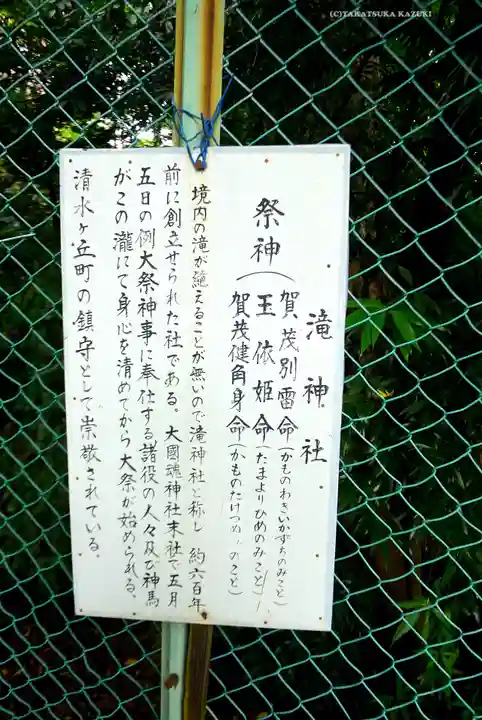 (C)TAKATSUKA KAZUKI
滝神社
祭神
賀茂別雷命(かものわきいかずちのみこと)
玉依姫命(たまよりひめのみこと)
賀茂健角身命(かものたけつぬ のみこと)
境内の滝が絶えることが無いので滝神社と称し 約六百年
前に創立せられた社である。大國魂神社末社で五月
五日の例大祭神事に奉仕する諸役の人々及び神馬
がこの瀧にて身心を清めてから大祭が始められる。
清水ヶ丘町の鎮守として崇敬されている。